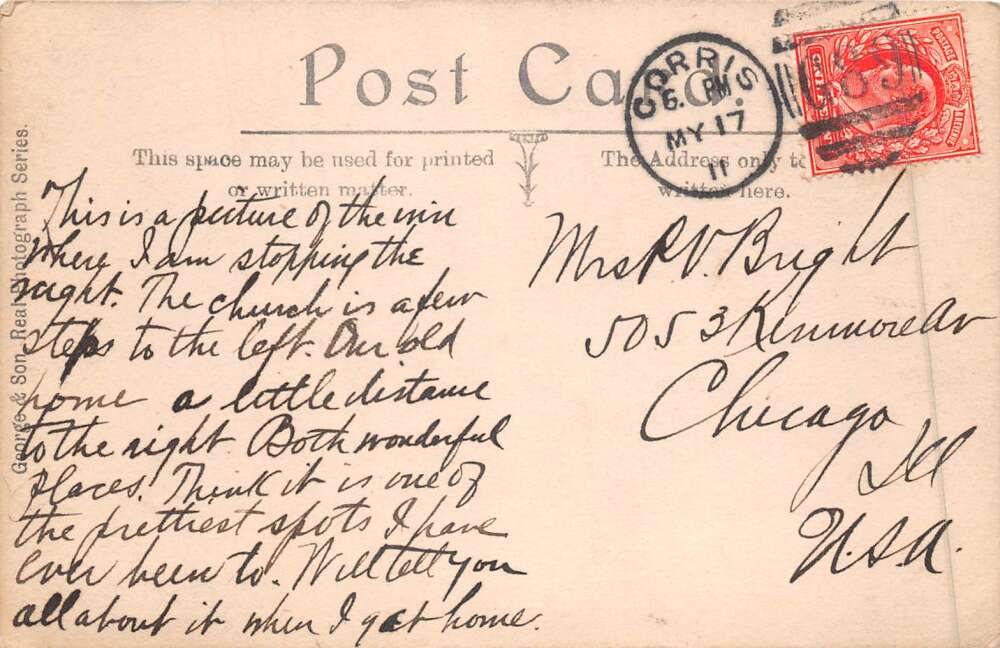 Post Card.
This space may be used for printed
or written matter.
The Address only to
written here.
George & Son, Real Photograph Series.
CORRIS
6. PM
MY 17
11
G89
This is a picture of the inn
where I am stopping the
night. The church is a few
steps to the left. Our old
home a little distance
to the right. Both wonderful
places. Think it is one of
the prettiest spots I have
ever been to. Will tell you
all about it when I get home.
Mrs R V. Bright
5053 Kenmore Av
Chicago
Ill
U.S.A.